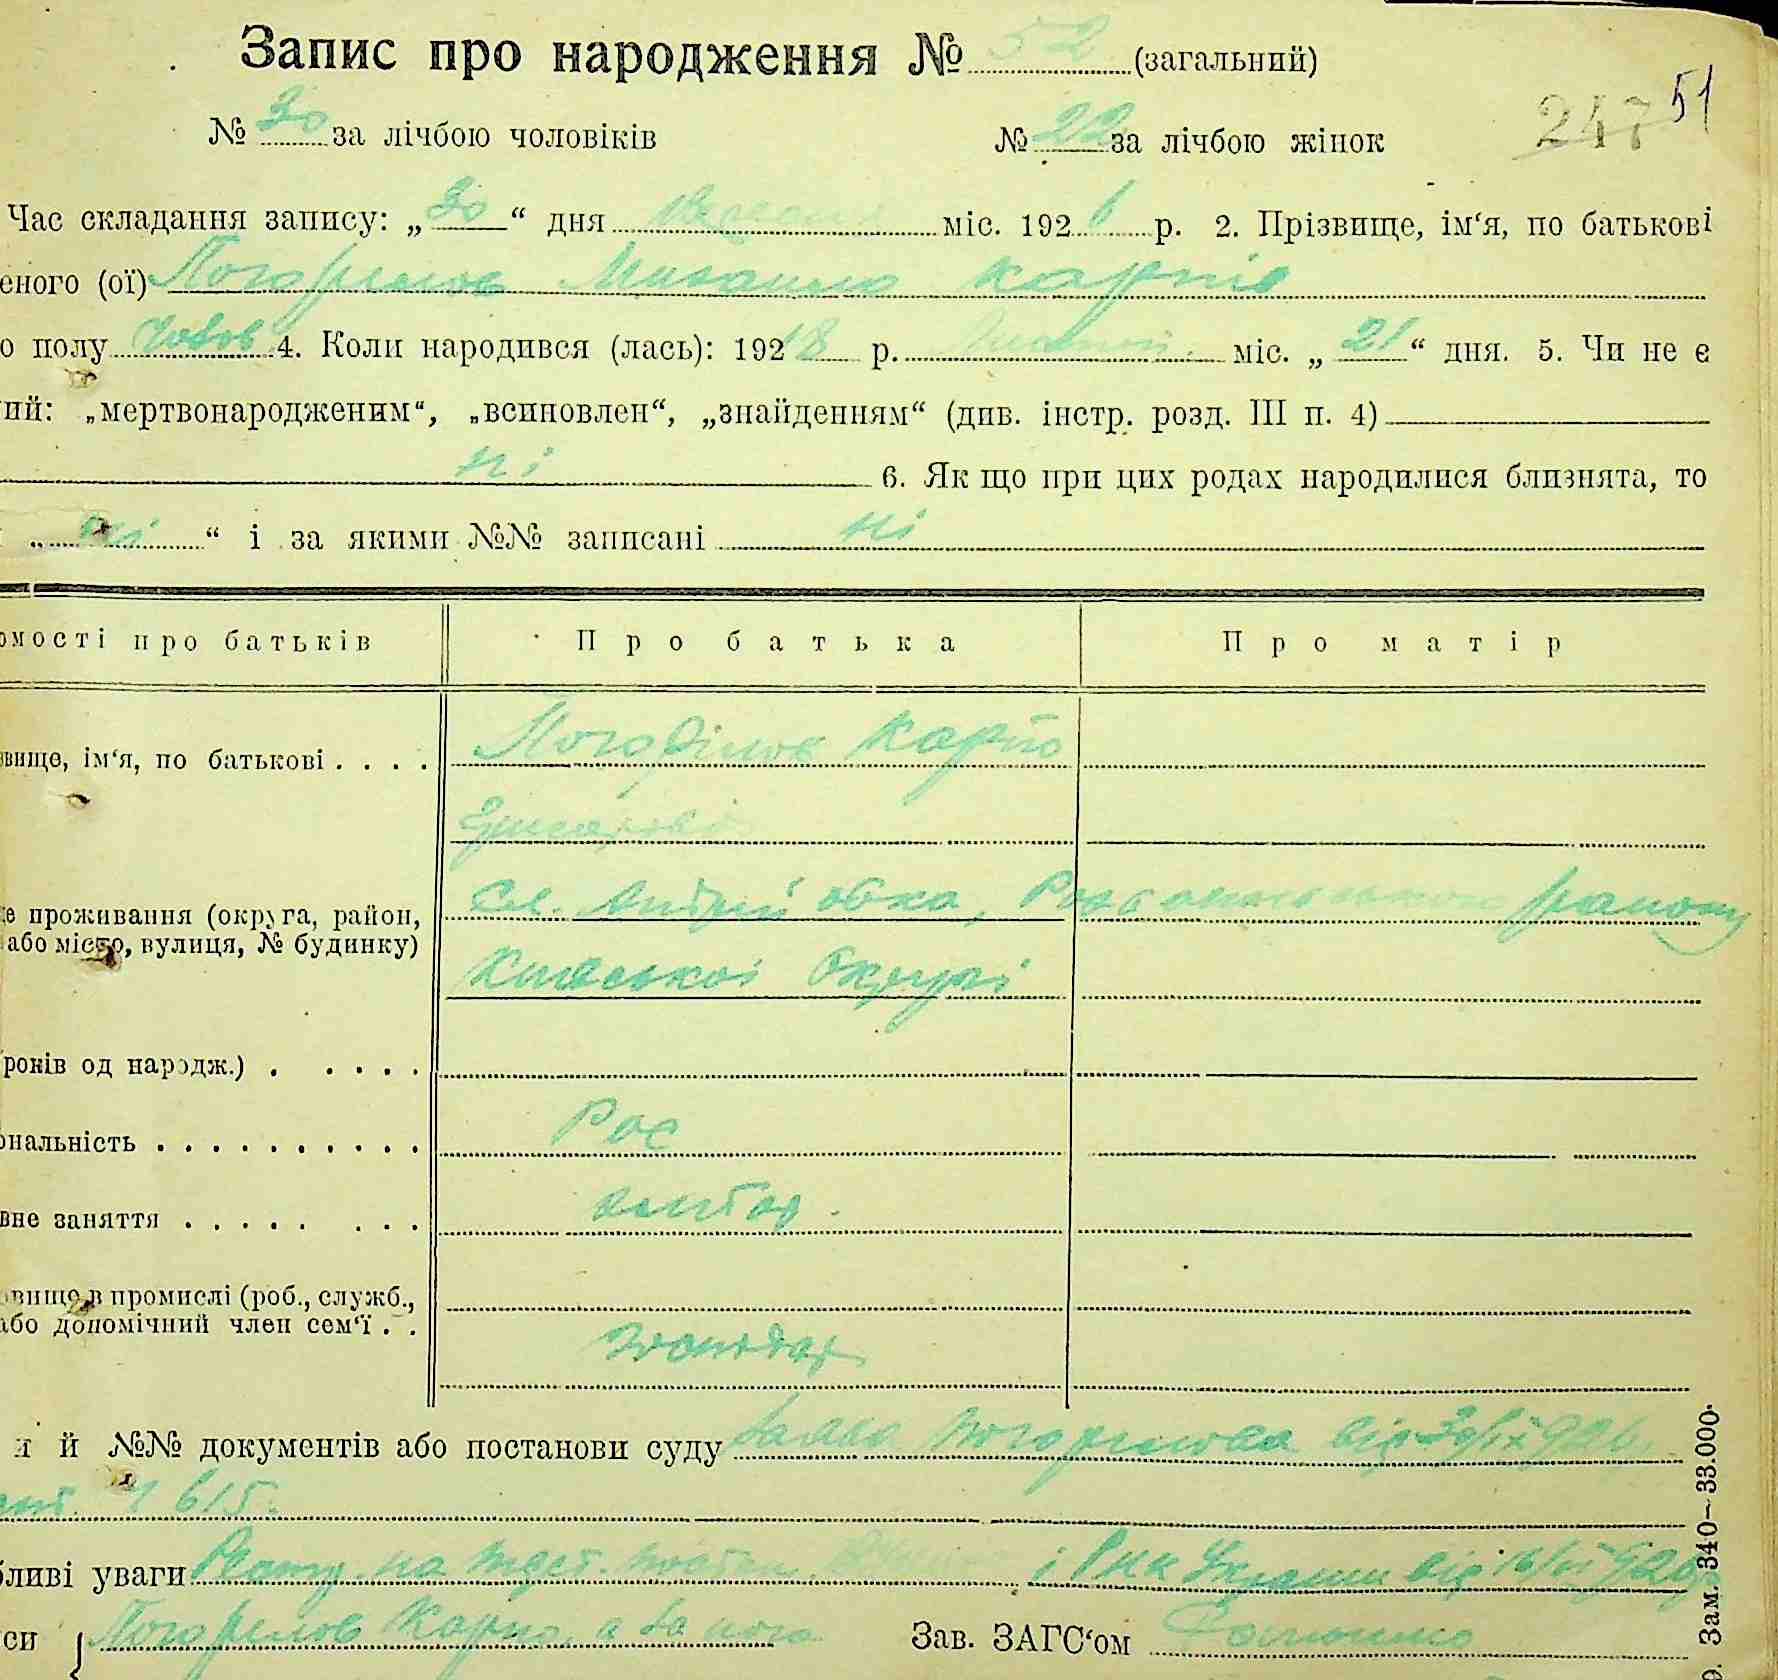 Запис про народження № 52 (загальний)
247 51
№ 30 за лічбою чоловіків № 22 за лічбою жінок
Час складання запису: „30“ дня міс. 1926 р. 2. Прізвище, ім‘я, по батькові
еного (ої) Погорелов Михайло Карпів
о полу 4. Коли народився (лась): 19218 р. міс. „21“ дня. 5. Чи не є
ий: „мертвонародженим“, „всиновлен“, „знайденням“ (див. інстр. розд. III п. 4)
ні 6. Як що при цих родах народилися близнята, то
„ні“ і за якими №№ записані ні
омості про батьків Про батька Про матір
вище, ім‘я, по батькові . . . . Погорілов Карпо
е проживання (округа, район, Сл. Андріївка, району
або місто, вулиця, № будинку) Київської Округи
років од народж.) . . . . .
ональність . . . . . . . . . . Рос
вне заняття . . . . . . . .
овище в промислі (роб., служб.,
або допомічний член сем‘ї . . господар
я й №№ документів або постанови суду Заява Погорелова від 30/IX 926
615.
бливі уваги на і РНК України від 16/ 926
си { Погорелов Карпо, а за його Зав. ЗАГС‘ом
Зам. 340—33.000.